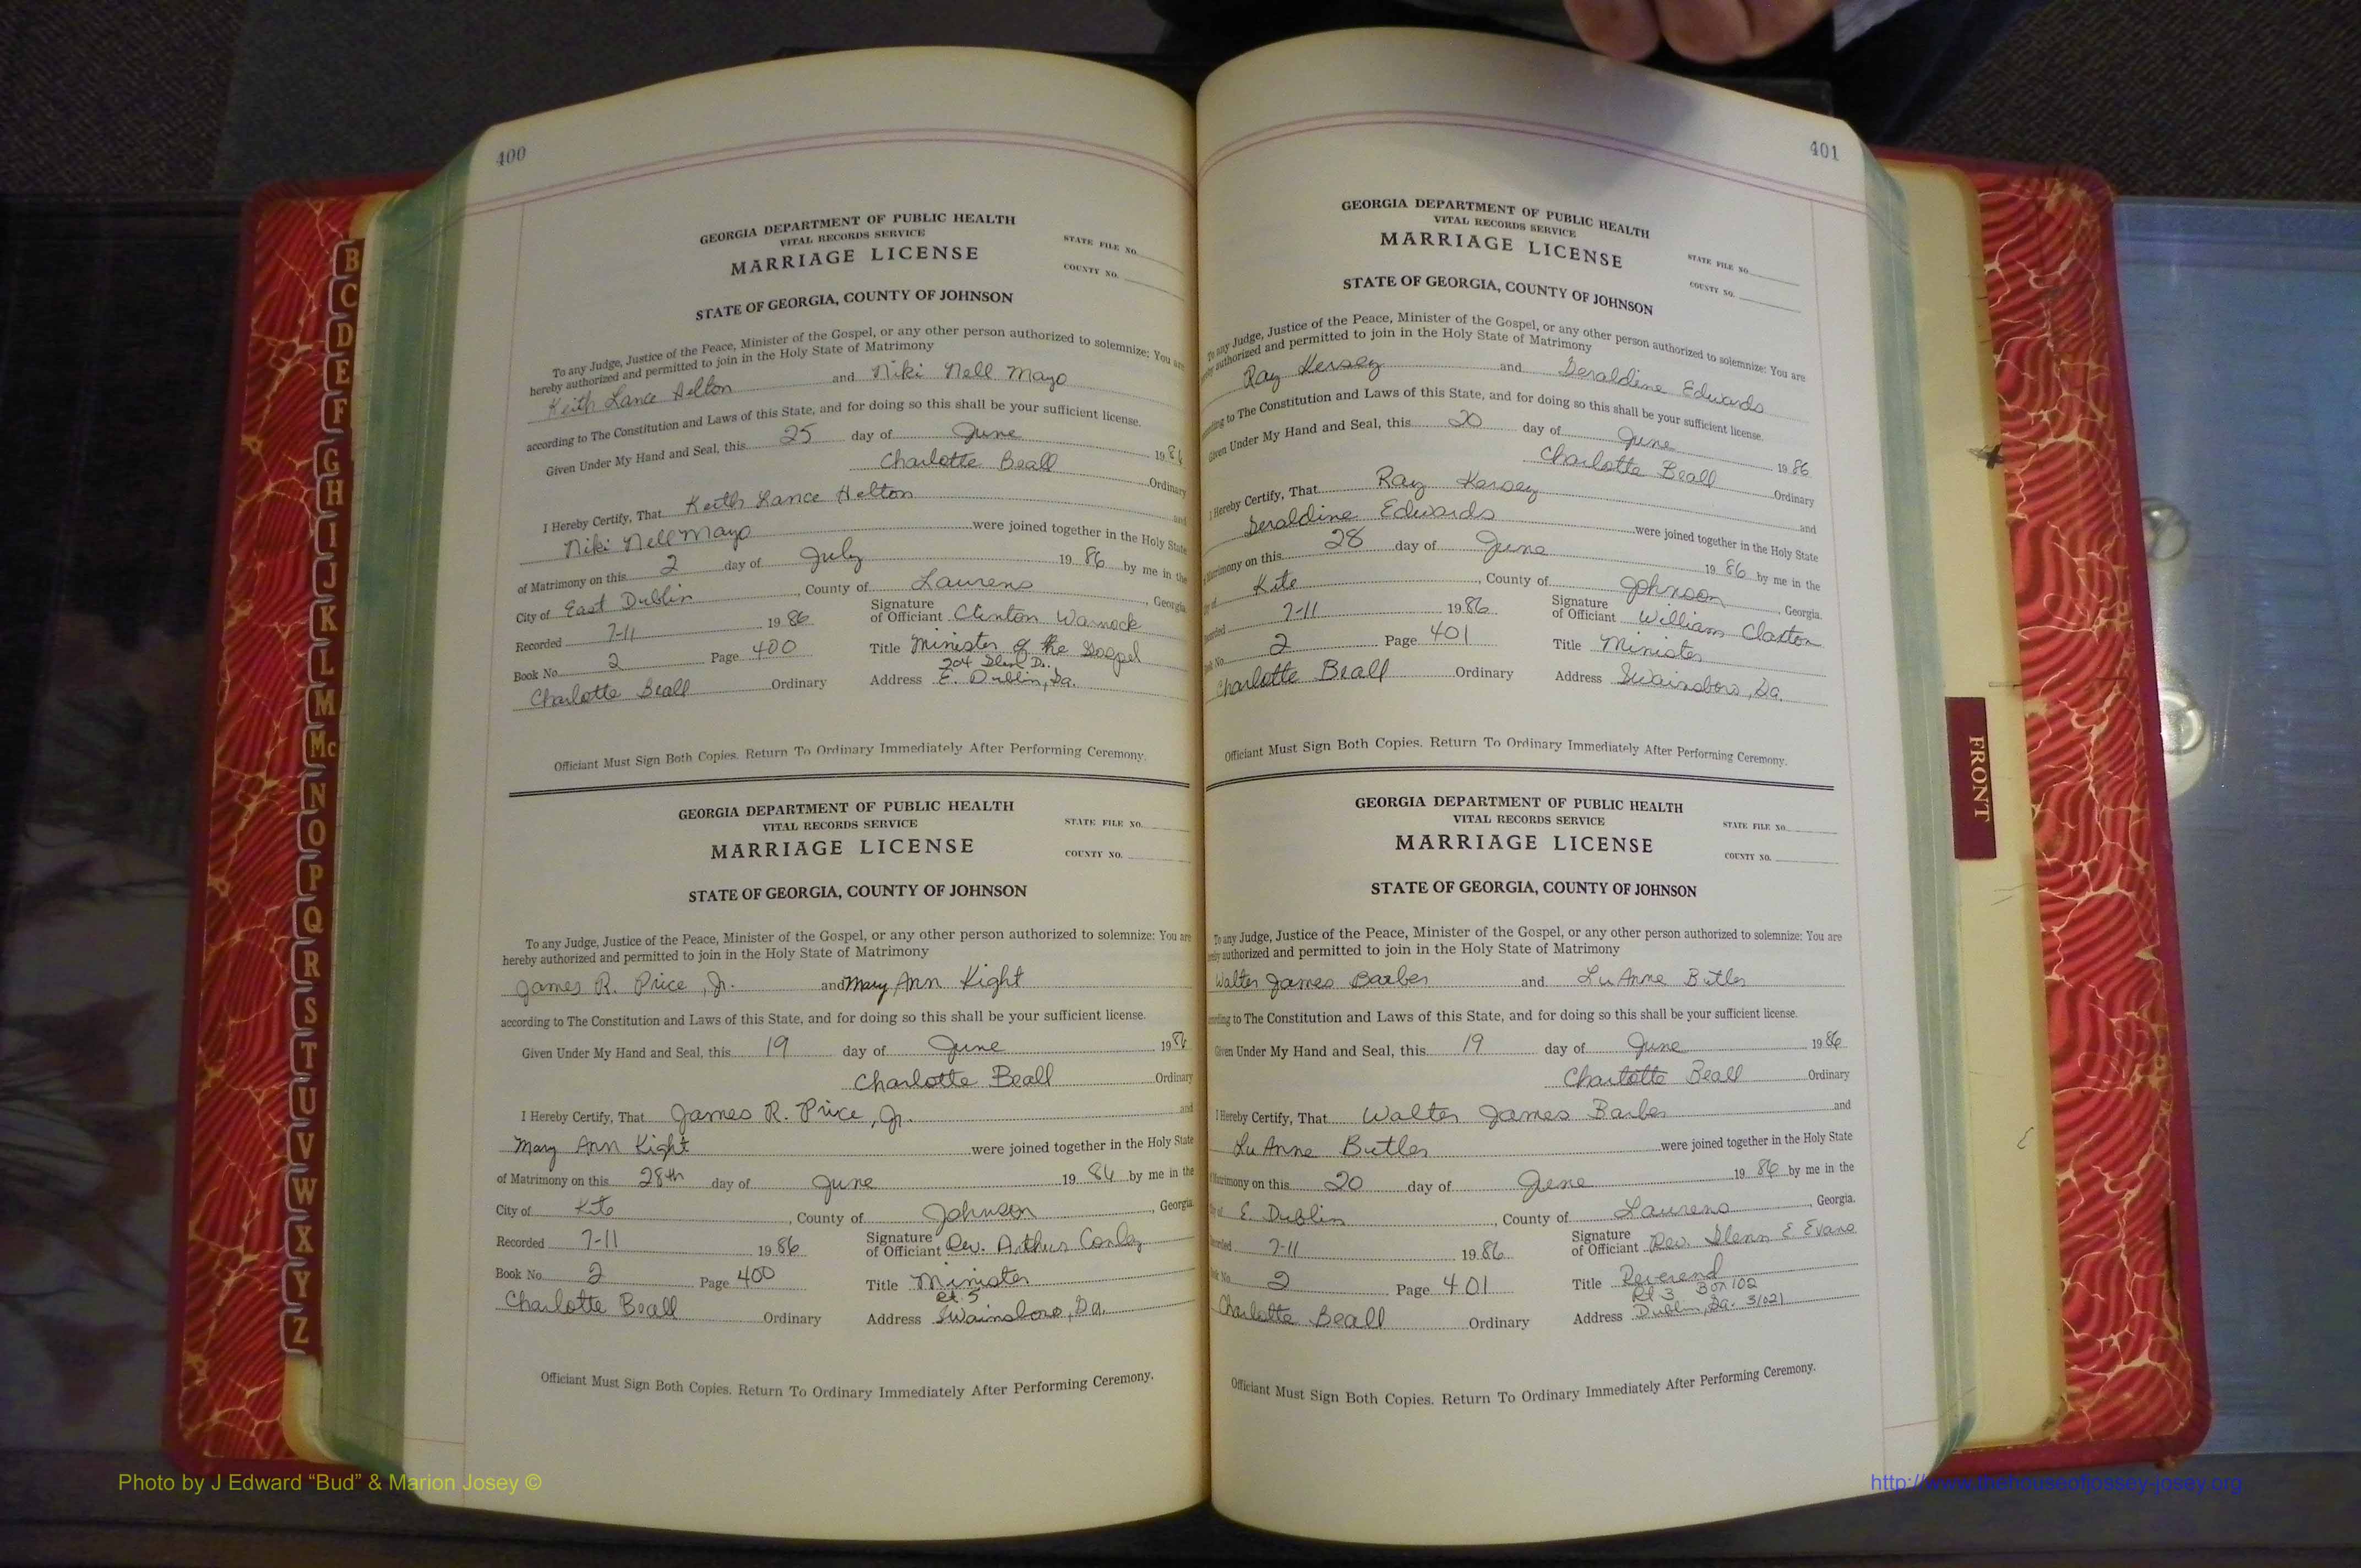 400
GEORGIA DEPARTMENT OF PUBLIC HEALTH
VITAL RECORDS SERVICE
MARRIAGE LICENSE
STATE FILE NO.
COUNTY NO.
STATE OF GEORGIA, COUNTY OF JOHNSON
To any Judge, Justice of the Peace, Minister of the Gospel, or any other person authorized to solemnize: You are
hereby authorized and permitted to join in the Holy State of Matrimony
Keith Lance Helton and Niki Nell Mayo
according to The Constitution and Laws of this State, and for doing so this shall be your sufficient license.
Given Under My Hand and Seal, this 25 day of June 1986
Charlotte Beall Ordinary
I Hereby Certify, That Keith Lance Helton and
Niki Nell Mayo were joined together in the Holy State
of Matrimony on this 2 day of July 1986 by me in the
City of East Dublin, County of Laurens, Georgia
Recorded 7-11 1986 Signature of Officiant Clinton Warnock
Book No. 2 Page 400 Title Minister of the Gospel
204
Charlotte Beall Ordinary Address E. Dublin, Ga.
Officiant Must Sign Both Copies. Return To Ordinary Immediately After Performing Ceremony.
GEORGIA DEPARTMENT OF PUBLIC HEALTH
VITAL RECORDS SERVICE
MARRIAGE LICENSE
STATE FILE NO.
COUNTY NO.
STATE OF GEORGIA, COUNTY OF JOHNSON
To any Judge, Justice of the Peace, Minister of the Gospel, or any other person authorized to solemnize: You are
hereby authorized and permitted to join in the Holy State of Matrimony
James R. Price, Jr. and Mary Ann Kight
according to The Constitution and Laws of this State, and for doing so this shall be your sufficient license.
Given Under My Hand and Seal, this 19 day of June 1986
Charlotte Beall Ordinary
I Hereby Certify, That James R. Price, Jr. and
Mary Ann Kight were joined together in the Holy State
of Matrimony on this 28th day of June 1986 by me in the
City of Kite, County of Johnson, Georgia
Recorded 7-11 1986 Signature of Officiant Rev. Arthur Conley
Book No. 2 Page 400 Title Minister
Rt. 5
Charlotte Beall Ordinary Address Swainsboro, Ga.
Officiant Must Sign Both Copies. Return To Ordinary Immediately After Performing Ceremony.
401
GEORGIA DEPARTMENT OF PUBLIC HEALTH
VITAL RECORDS SERVICE
MARRIAGE LICENSE
STATE FILE NO.
COUNTY NO.
STATE OF GEORGIA, COUNTY OF JOHNSON
To any Judge, Justice of the Peace, Minister of the Gospel, or any other person authorized to solemnize: You are
authorized and permitted to join in the Holy State of Matrimony
Ray Kersey and Geraldine Edwards
to The Constitution and Laws of this State, and for doing so this shall be your sufficient license.
Given Under My Hand and Seal, this 20 day of June 1986
Charlotte Beall Ordinary
I Hereby Certify, That Ray Kersey and
Geraldine Edwards were joined together in the Holy State
Matrimony on this 28 day of June 1986 by me in the
Kite, County of Johnson, Georgia.
Recorded 7-11 1986 Signature of Officiant William Claxton
No. 2 Page 401 Title Minister
Charlotte Beall Ordinary Address Swainsboro, Ga.
Officiant Must Sign Both Copies. Return To Ordinary Immediately After Performing Ceremony.
GEORGIA DEPARTMENT OF PUBLIC HEALTH
VITAL RECORDS SERVICE
MARRIAGE LICENSE
STATE FILE NO.
COUNTY NO.
STATE OF GEORGIA, COUNTY OF JOHNSON
To any Judge, Justice of the Peace, Minister of the Gospel, or any other person authorized to solemnize: You are
authorized and permitted to join in the Holy State of Matrimony
Walter James Barber and LuAnne Butler
to The Constitution and Laws of this State, and for doing so this shall be your sufficient license.
Given Under My Hand and Seal, this 19 day of June 1986
Charlotte Beall Ordinary
I Hereby Certify, That Walter James Barber and
LuAnne Butler were joined together in the Holy State
Matrimony on this 20 day of June 1986 by me in the
E. Dublin, County of Laurens, Georgia.
7-11 1986 Signature of Officiant Rev. Glenn E. Evans
No. 2 Page 401 Title Reverend
Rt 3 Box 102
Charlotte Beall Ordinary Address Dublin, Ga. 31021
Officiant Must Sign Both Copies. Return To Ordinary Immediately After Performing Ceremony.
B
C
D
E
F
G
H
I
J
K
L
M
Mc
N
O
P
Q
R
S
T
U
V
W
X
Y
Z
FRONT
Photo by J Edward “Bud” & Marion Josey ©
http://www.thehouseofjossey-josey.org